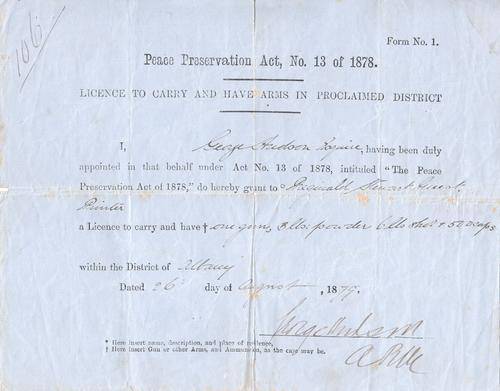 106
Form No. 1.
Peace Preservation Act, No. 13 of 1878.
LICENCE TO CARRY AND HAVE ARMS IN PROCLAIMED DISTRICT
I, George Hudson Esquire, having been duly
appointed in that behalf under Act No. 13 of 1878, intituled "The Peace
Preservation Act of 1878," do hereby grant to Stewart
Printer
a Licence to carry and have † one gun, 3 lbs: powder 6 lbs shot & 500 caps
within the District of Albany
Dated 26 day of August, 1879.
George Hudson
* Here insert name, description, and place of residence,
† Here insert Gun or other Arms, and Ammunition, as the case may be.